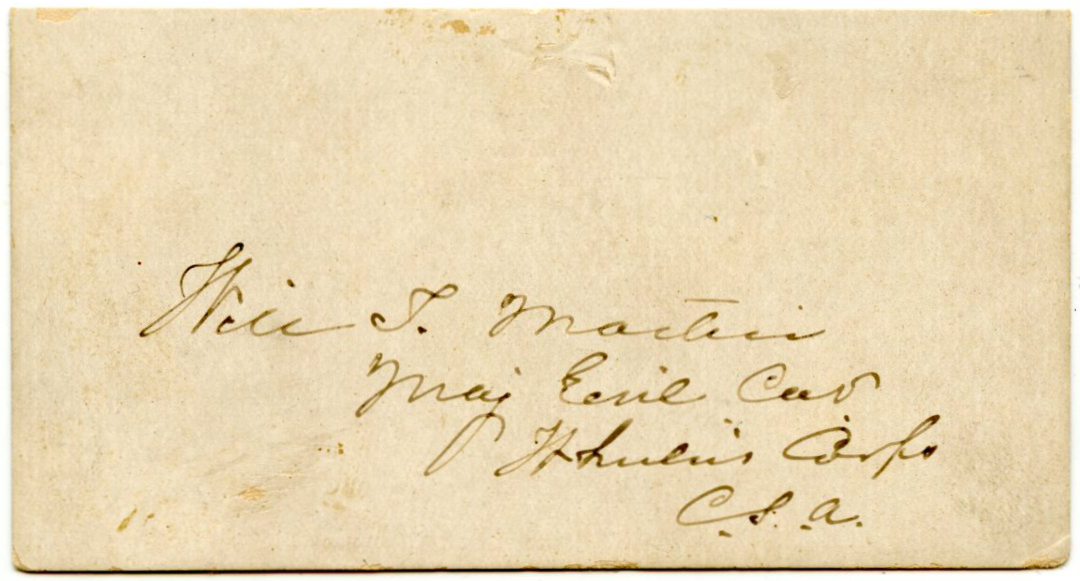 Will T. Martin
Maj Genl Cav
Wheelers Corps
C.S.A.